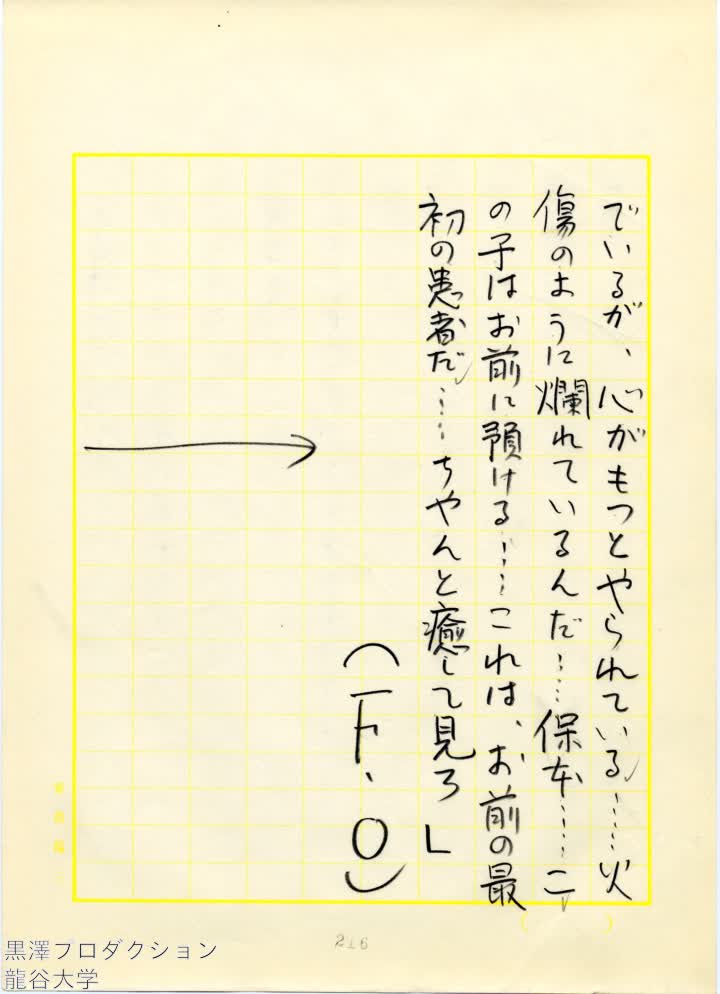 でいるが、心がもつとやられている……火
傷のように爛れているんだ……保本……こ
の子はお前に預ける……これは、お前の最
初の患者だ……ちやんと癒して見ろ」
（F・O）
216
黒澤プロダクション
龍谷大学